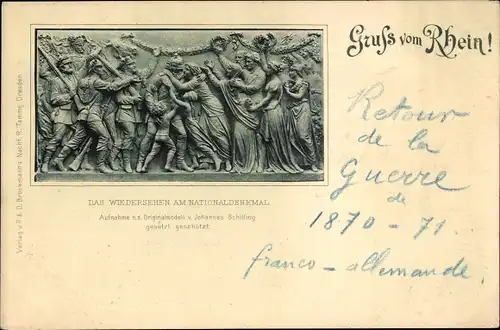 Gruß vom Rhein!
DAS WIEDERSEHEN AM NATIONALDENKMAL.
Aufnahme n.d. Originalmodell v. Johannes Schilling
gesetzl. geschützt.
Retour
de la
Guerre
de
1870 - 71
franco - allemande.
Verlag v. F. & O. Brockmann's Nachf. R. Tamme, Dresden.